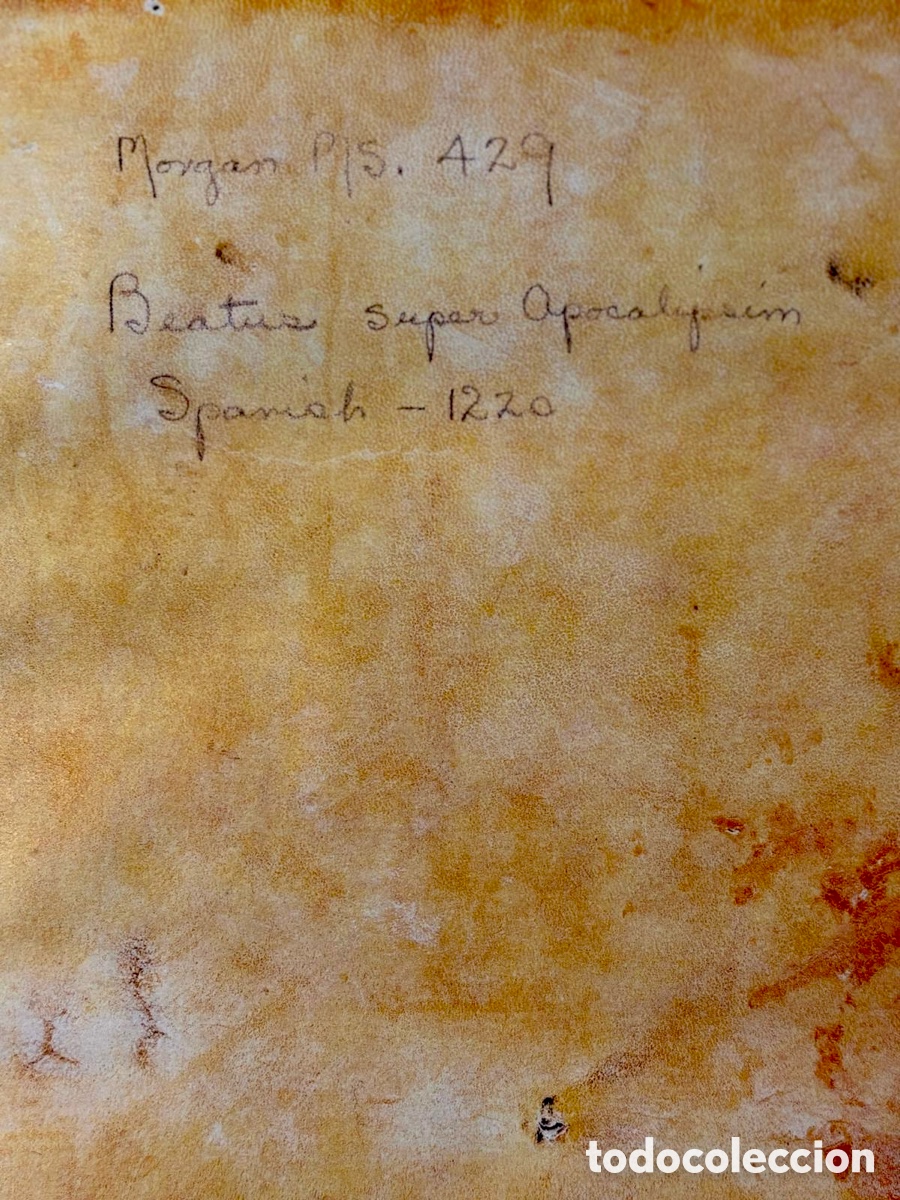 Morgan MS. 429
Beatus super Apocalipsim
Spanish - 1220
todocoleccion